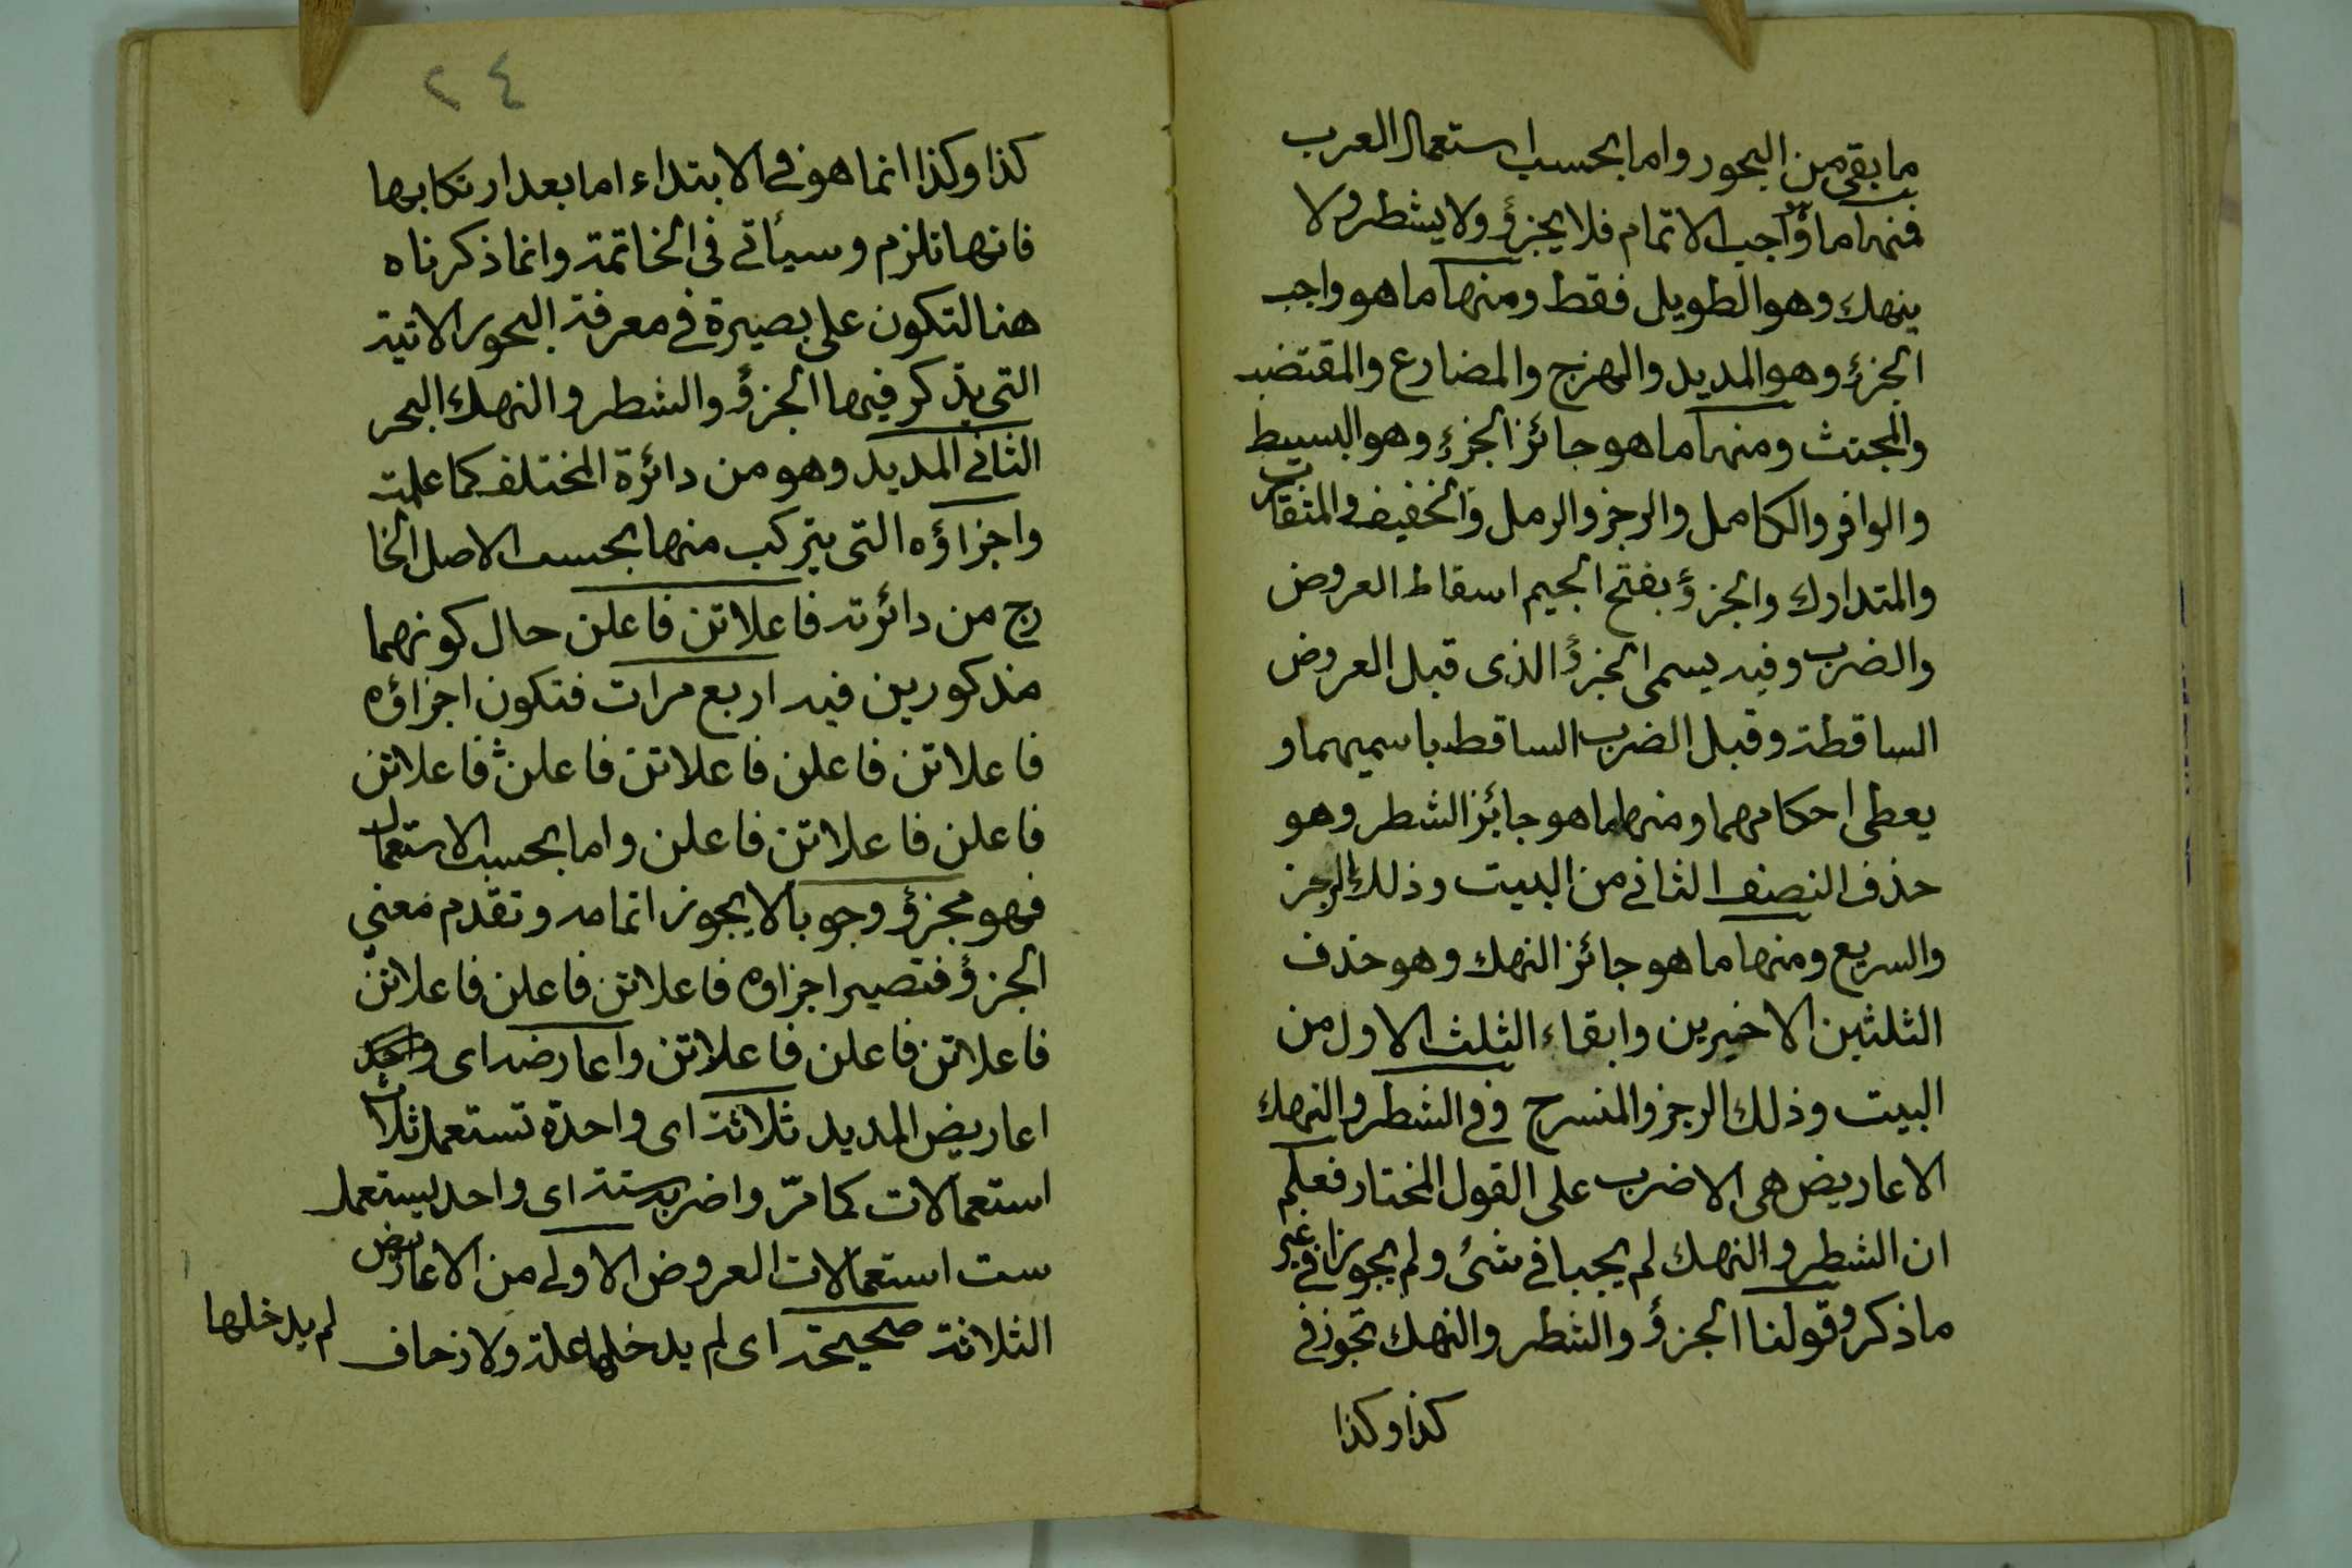 ما بقى من البحور واما بحسب استعمال العرب
فمنها ما هو واجب الاتمام فلا يجزؤ ولا يشطر ولا
ينهك وهو الطويل فقط ومنها ما هو واجب
الجزء وهو المديد والهزج والمضارع والمقتضب
والمجتث ومنها ما هو جائز الجزء وهو البسيط
والوافر والكامل والرجز والرمل والخفيف والمتقارب
والمتدارك والجزؤ بفتح الجيم اسقاط العروض
والضرب وفيه يسمى الجزؤ الذى قبل العروض
الساقطة وقبل الضرب الساقط باسميهما و
يعطى احكامهما ومنها ما هو جائز الشطر وهو
حذف النصف الثانى من البيت وذلك الرجز
والسريع ومنها ما هو جائز النهك وهو حذف
الثلثين الاخيرين وابقاء الثلث الاول من
البيت وذلك الرجز والمنسرح وفى الشطر والنهك
الاعاريض هى الاضرب على القول المختار فعلم
ان الشطر والنهك لم يجبا فى شئ ولم يجوزا فى غير
ما ذكر وقولنا الجزؤ والشطر والنهك تجوز فى
كذا وكذا
٢٤
كذا وكذا انما هو فى الابتداء اما بعد ارتكابها
فانها تلزم وسيأتى فى الخاتمة وانما ذكرناه
هنا لتكون على بصيرة فى معرفة البحور الاتية
التى يذكر فيها الجزؤ والشطر والنهك البحر
الثانى المديد وهو من دائرة المختلف كما علمت
واجزاؤه التى يتركب منها بحسب الاصل الخا
رج من دائرته فاعلاتن فاعلن حال كونهما
مذكورين فيه اربع مرات فتكون اجزاؤه
فاعلاتن فاعلن فاعلاتن فاعلن فاعلاتن
فاعلن فاعلاتن فاعلن واما بحسب الاستعمال
فهو مجزؤ وجوبا لا يجوز اتمامه وتقدم معنى
الجزؤ فتصير اجزاوه فاعلاتن فاعلن فاعلاتن
فاعلاتن فاعلن فاعلاتن واعارضه اى
اعاريض المديد ثلاثة اى واحدة تستعمل ثلاث
استعمالات كما مرّ واضربه ستة اى واحد يستعمل
ست استعمالات العروض الاولى من الاعاريض
الثلاثة صحيحة اى لم يدخلها علة ولا زحاف
لم يدخلها